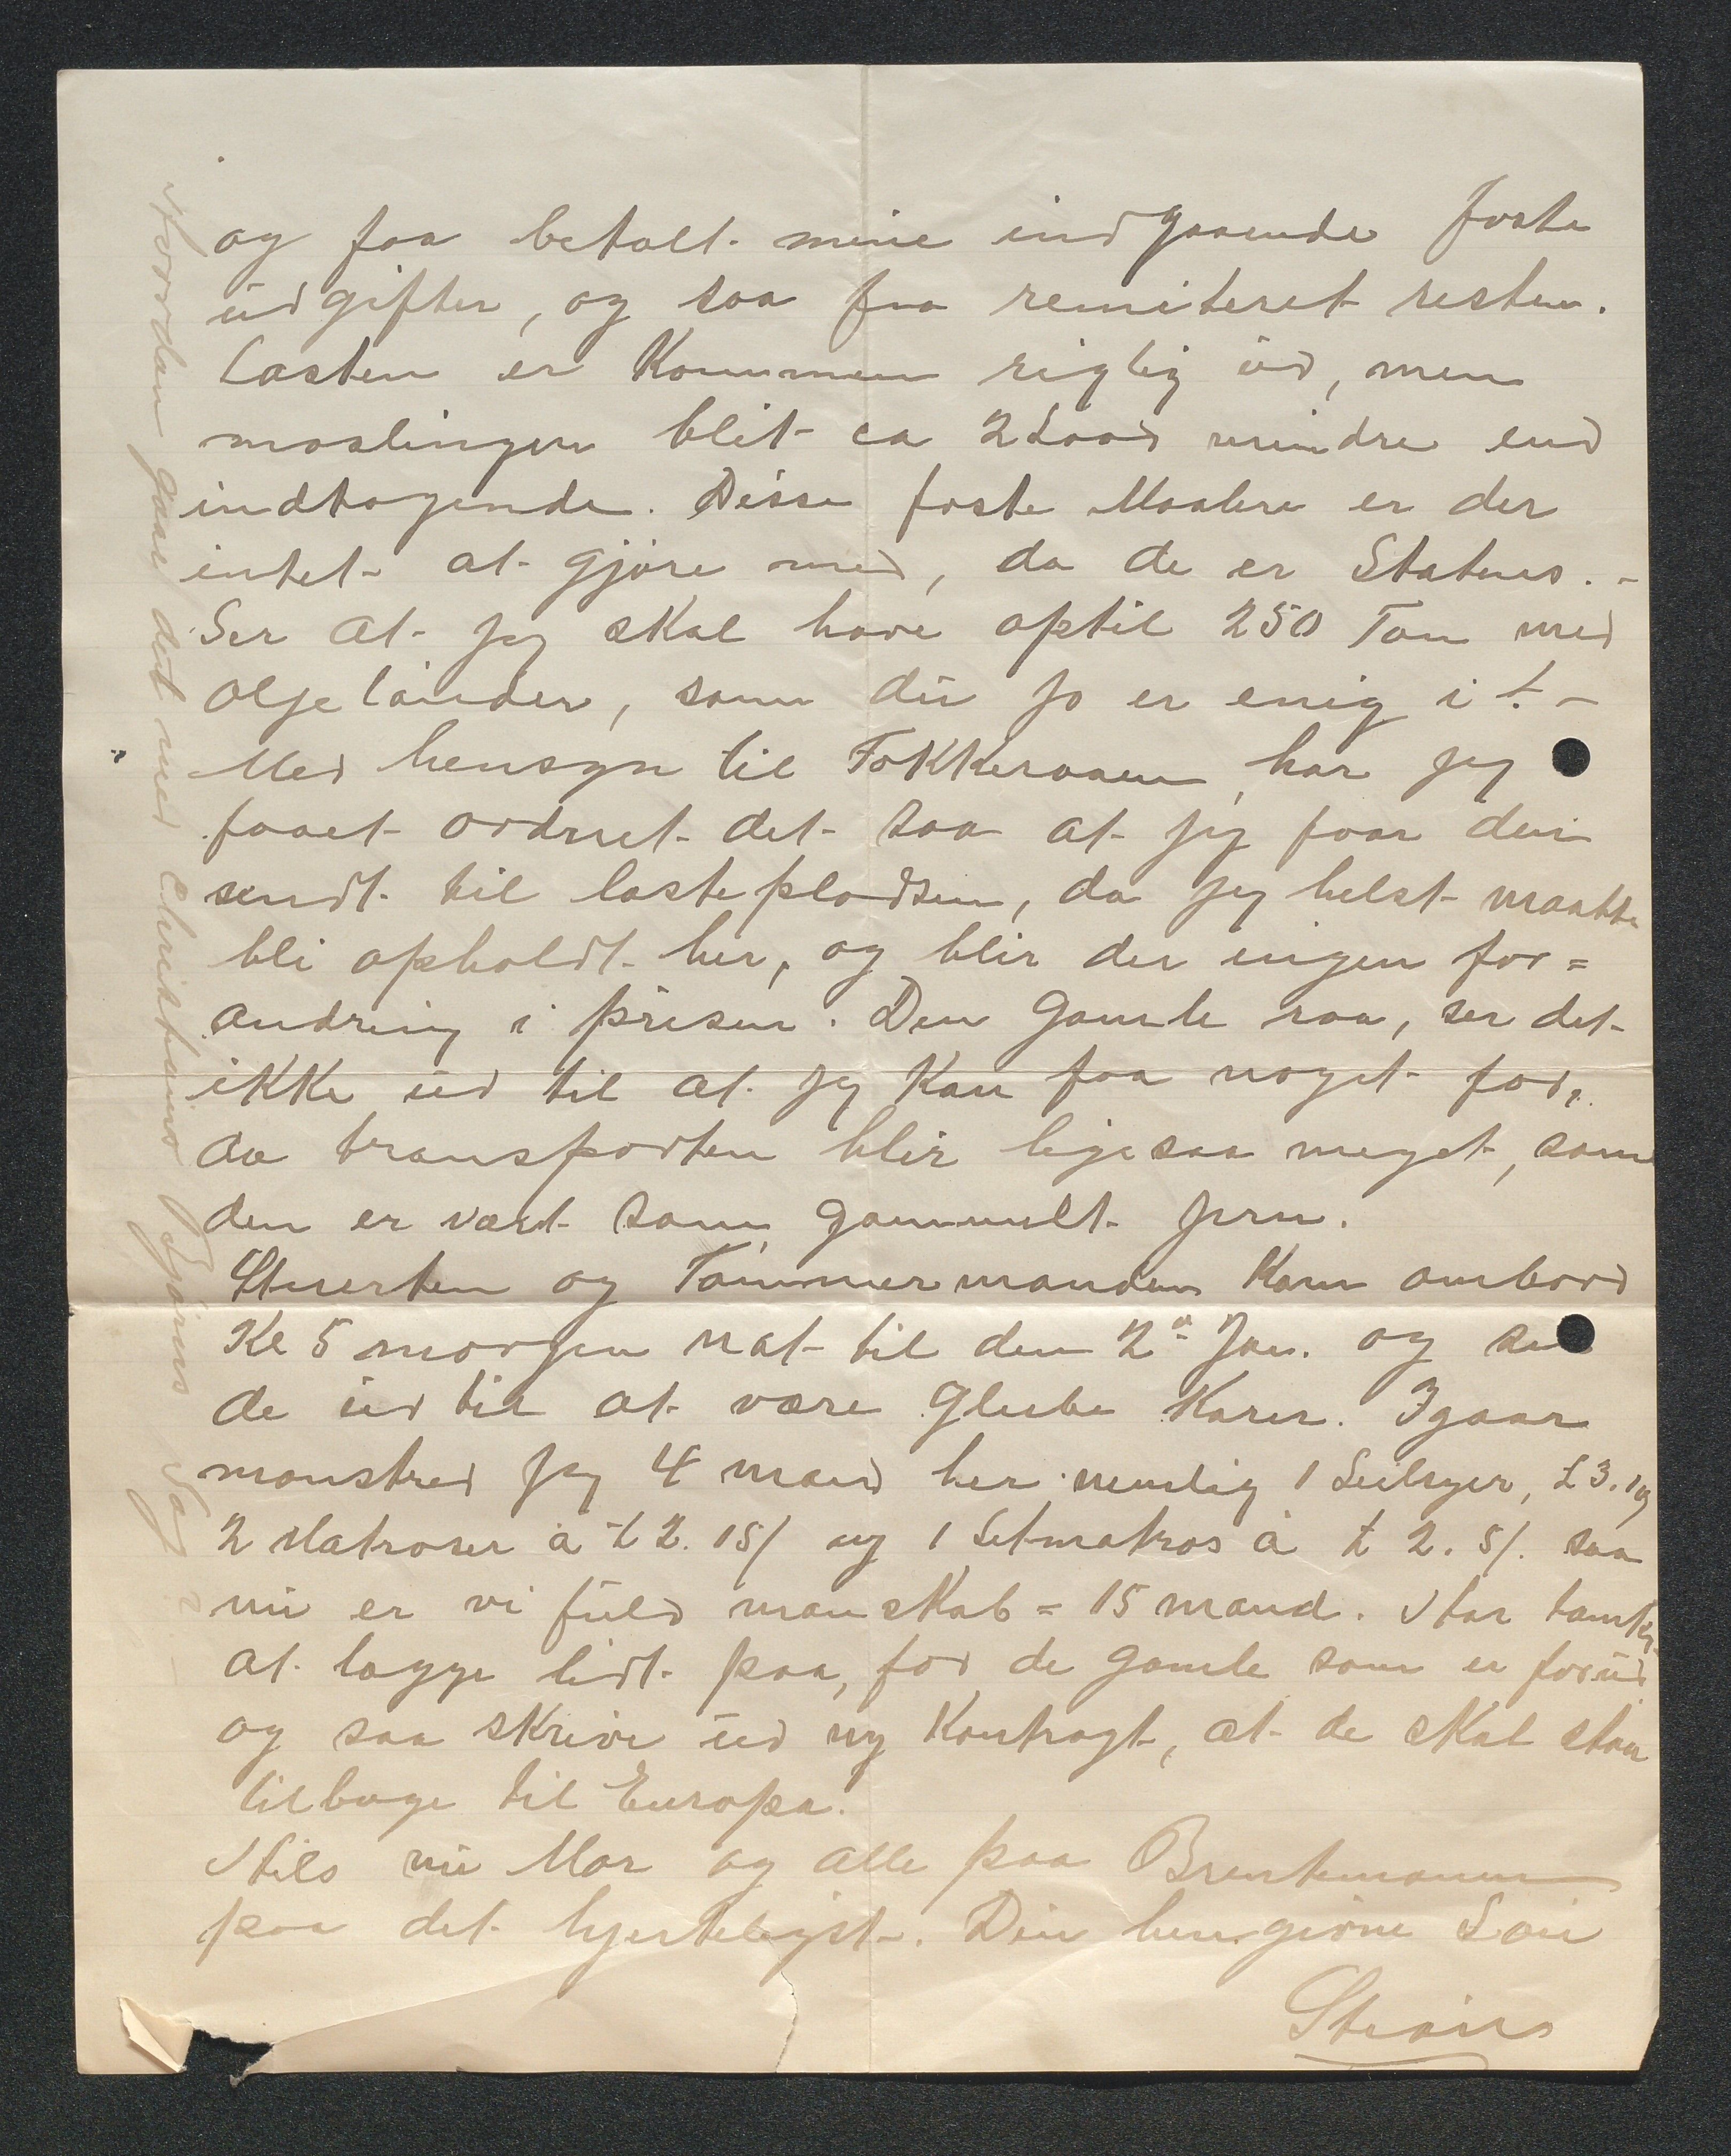 og faa betalt mine indgaaende faste
udgifter, og saa faa remiteret resten.
Lasten er Kommen rigtig ud, men
maalingen blit ca 2 Load mindre end
indtagende. Disse faste Maalere er der
intet at gjøre med, da de er Statens. -
Ser at jeg skal have optil 250 Ton med
olje tønder, som du jo er enig i! -
Med hensyn til Fokkeraaen, har jeg
faaet ordnet det saa at jeg faar den
sendt til lasteplodsen, da jeg helst maatte
bli opholdt her, og blir der ingen for=
andring i prisen. Den Gamle raa, ser det
ikke ud til at jeg kan faa noget for,
da transporten blir ligesaa meget, som
den er vært som gammelt jern.
Stuerten og Tømmermanden Kom ombord
Kl 5 morgen nat til den 2ⁿ Jan. og ser
de ud til at være glube Karer. Igaar
mønstred jeg 4 mand her nemlig 1 Seilsyer, £ 3.10/
2 Matroser a £ 2.15/ og 1 Letmatros a £ 2.5/. saa
nu er vi fuld manskab = 15 mand. Har tænkt
at lægge lidt paa, for de gamle som er forud
og saa skrive ud ny Kontragt, at de skal staa
tilbage til Europa.
Hils nu Mor og alle paa
paa det hjerteligst. Din hengivne Søn
Hvordan gaar det med Christians Bjørns Sag? -